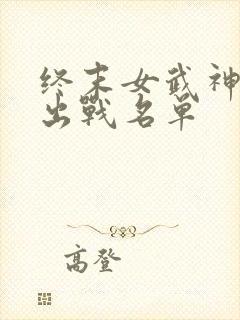 终末女武神
出戰名單
高登